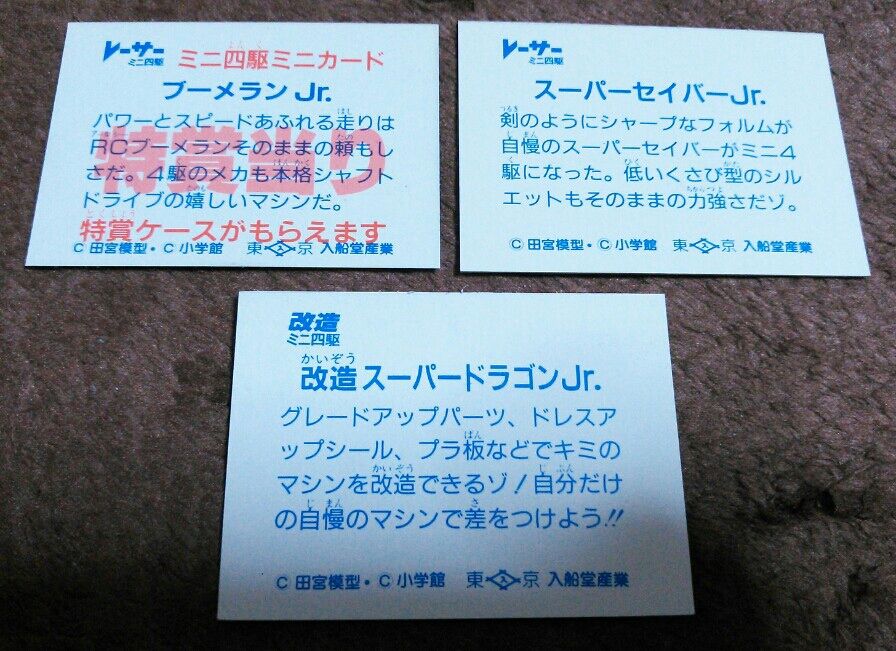 レーサー
ミニ四駆
ミニ四駆ミニカード
ブーメランJr.
パワーとスピードあふれる走りは
RCブーメランそのままの頼もし
さだ。4駆のメカも本格シャフト
ドライブの嬉しいマシンだ。
特賞当り
特賞ケースがもらえます
C田宮模型・C小学館 東入京 入船堂産業
レーサー
ミニ四駆
スーパーセイバーJr.
剣のようにシャープなフォルムが
自慢のスーパーセイバーがミニ4
駆になった。低いくさび型のシル
エットもそのままの力強さだゾ。
C田宮模型・C小学館 東入京 入船堂産業
改造
ミニ四駆
かいぞう
改造スーパードラゴンJr.
グレードアップパーツ、ドレスア
ップシール、プラ板などでキミの
マシンを改造できるゾ!自分だけ
の自慢のマシンで差をつけよう!!
C田宮模型・C小学館 東入京 入船堂産業